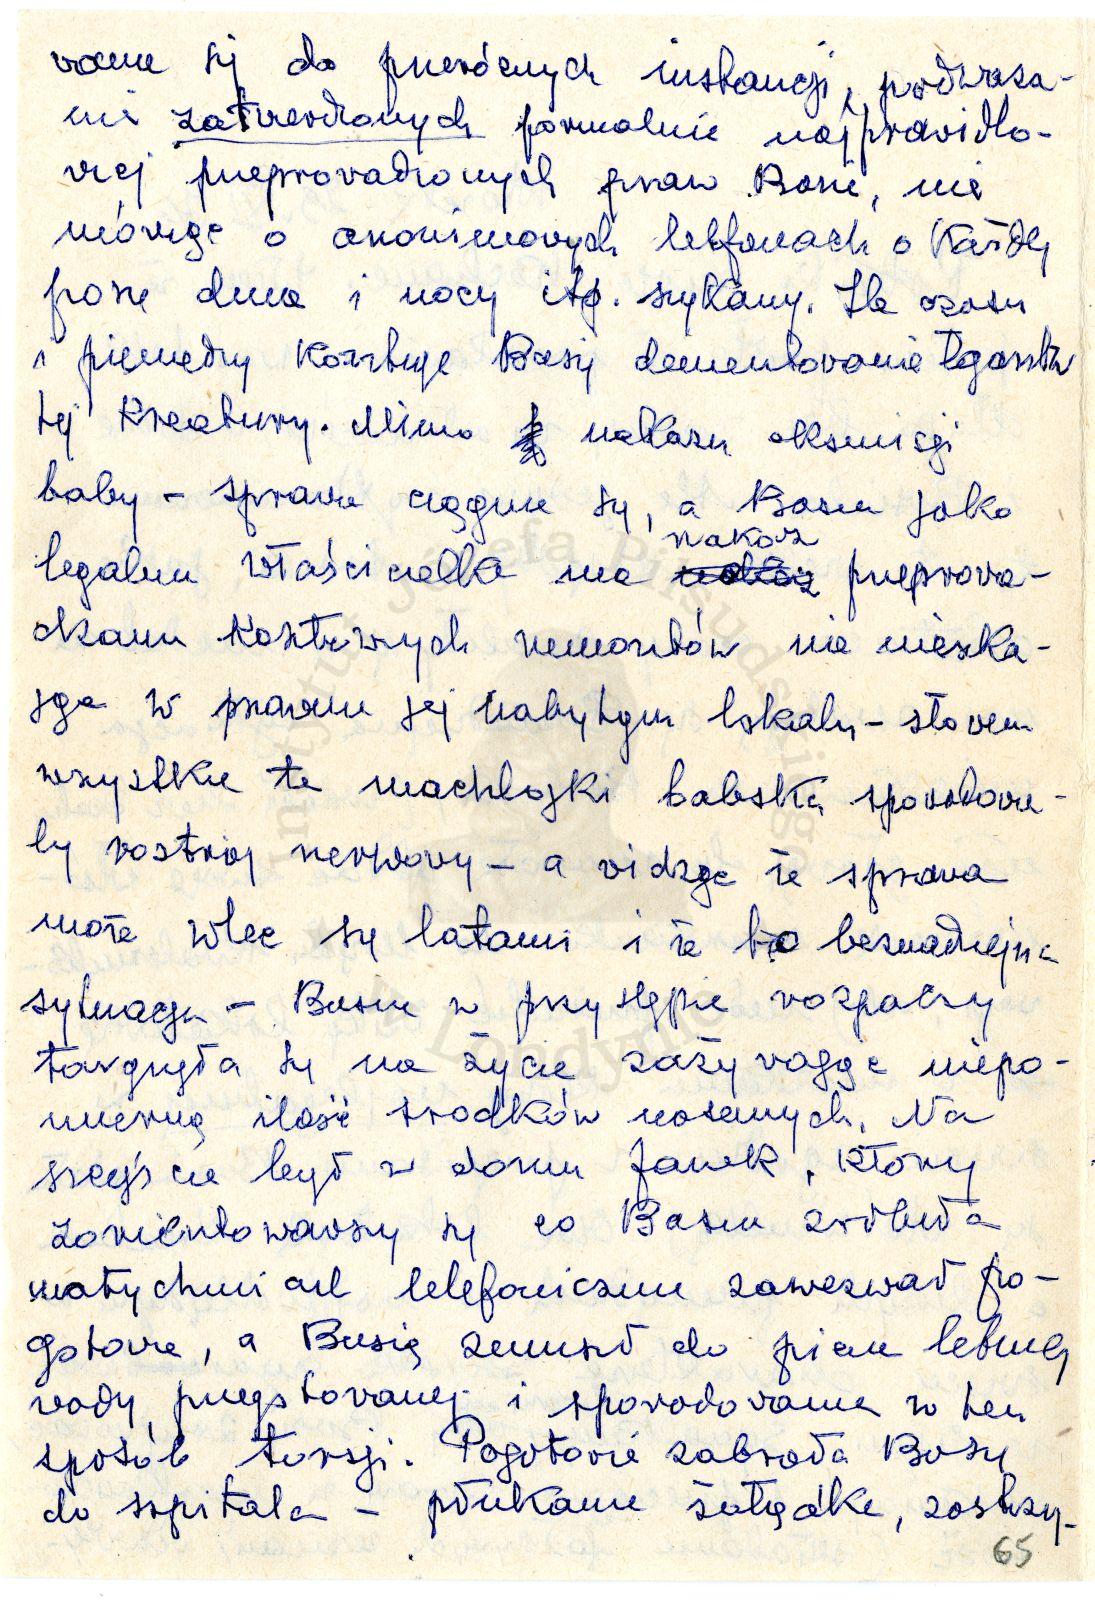 wanie się do przeróżnych instancji, podważa-
nie zatwierdzonych formalnie najprawidło-
wiej przeprowadzonych praw Basi, nie
mówiąc o anonimowych telefonach o każdej
porze dnia i nocy itp. szykany. Ile czasu
i pieniędzy kosztuje Basię dementowanie łgarstw
tej kreatury. Mimo nakazu eksmisji
baby – sprawa ciągnie się, a Basia jako
legalna właścicielka ma nakaz przeprowa-
dzania kosztownych remontów nie mieszka-
jąc w prawnie jej nabytym lokalu – słowem
wszystkie te machlojki babska spowodowa-
ły rozstrój nerwowy – a widząc że sprawa
może wlec się latami i że to beznadziejna
sytuacja – Basia w przystępie rozpaczy
targnęła się na życie zażywając niepo-
mierną ilość środków nasennych. Na
szczęście był w domu Janek, który
zorientowawszy się co Basia zrobiła
natychmiast telefonicznie zawezwał po-
gotowie, a Basię zmusił do picia letniej
wody przegotowanej i spowodowania w ten
sposób torsji. Pogotowie zabrało Basię
do szpitala – płukanie żołądka, zastrzy-
65
Instytut Józefa Piłsudskiego
w Londynie